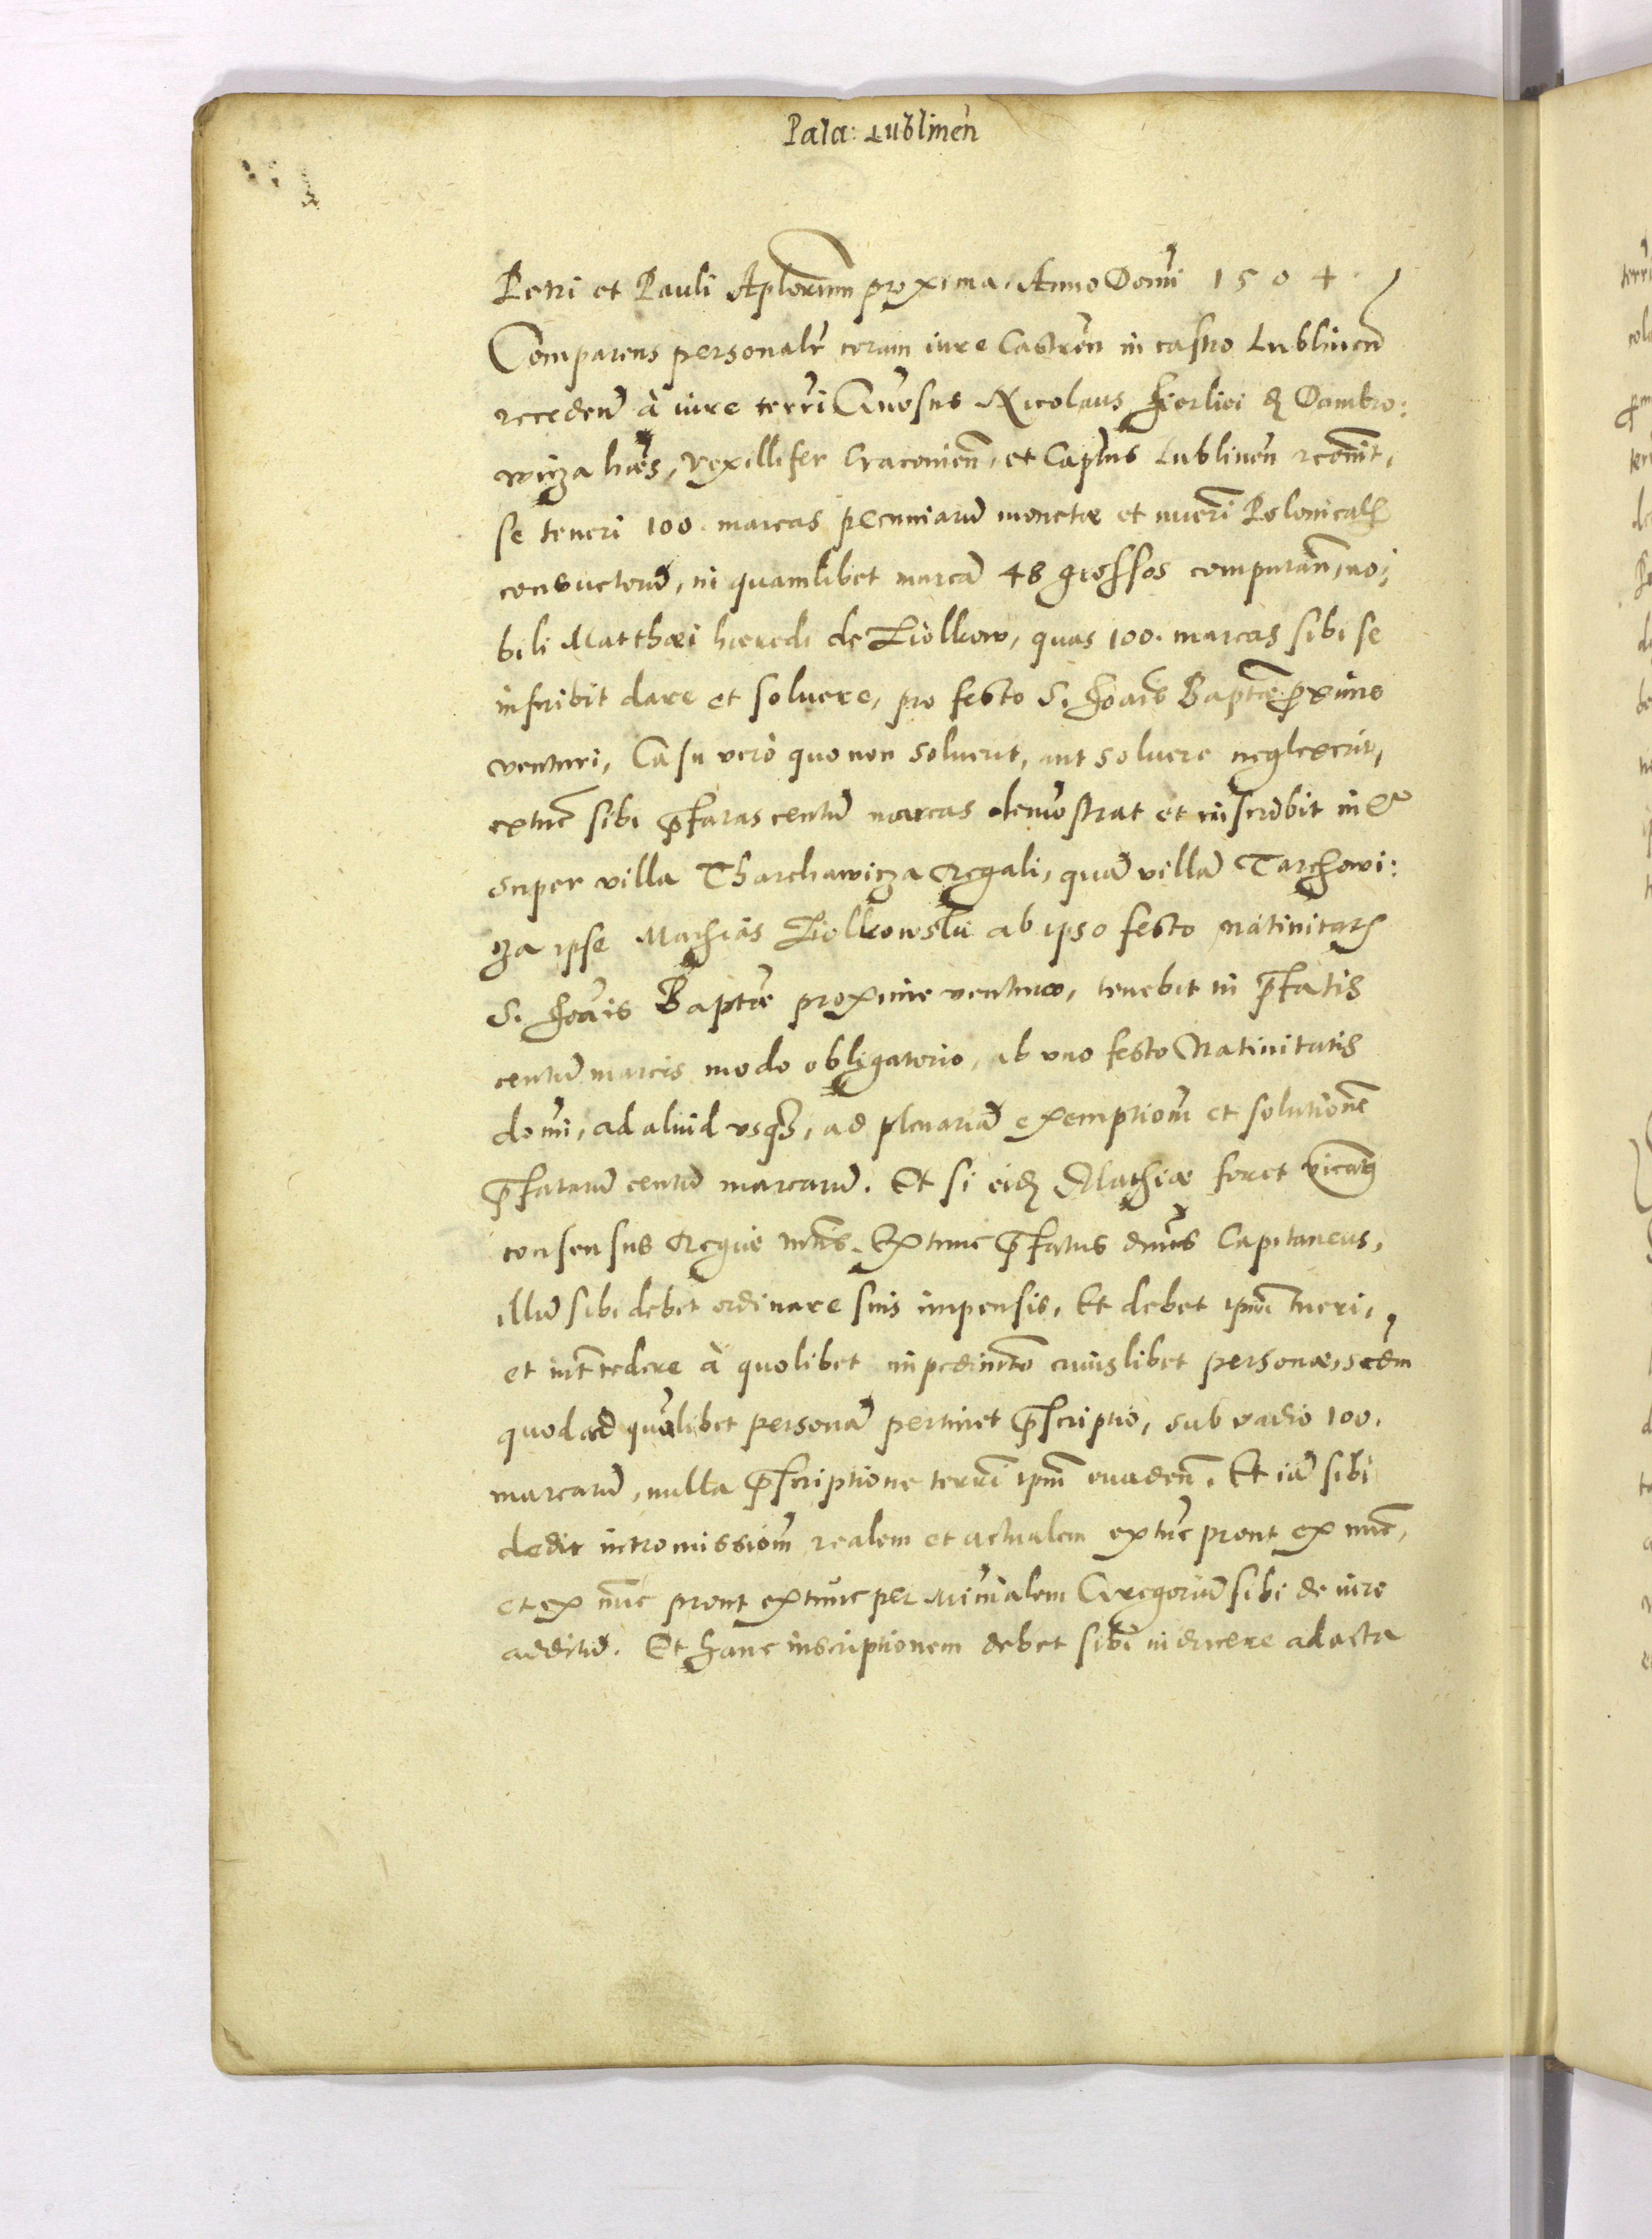 Pala: Lublinen̄
Petri et Pauli Aplorum proxima. Anno Domi 1504.
Comparens personalr̄ coram iure Castren̄ in castro Lublinen̄
recedend̄ à iure terri Gn̄osus Nicolaus Firliei d̄ Dambro:
wicza hæs, Vexillifer Cracouien̄, et Captn̄s Lublinen̄ recōnit,
se teneri 100. marcas pecuniarū monetæ et nueri Polonicalis
consuetorū, in quamlibet marcā 48 grossos computan̄, no:
bili Matthæi hæredi de Ziolkow, quas 100. marcas sibi se
inscribit dare et soluere, pro festo S. Joan̄is Baptæ proxime
venturi, Casu verò quo non soluerit, aut soluere neglexerit,
extunc sibi p̄fatas centū marcas demōstrat et inscribit in et
super villa Tharchawicza Regali, quā villā Tarchowi:
cza ipse Mathias Ziolkowski ab ipso festo Natiuitatis
S. Joan̄is Baptæ proxime venturo, tenebit in p̄fatis
centū marcis modo obligatorio, ab vno festo Natiuitatis
domi, ad aliud vsq3, ad plenariā exemptiom̄ et solutionē
p̄fatarū centū marcarū. Et si eid̄ Mathiæ foret
consensus Regiæ mtis. Extunc p̄fatus dn̄us Capitaneus,
illū sibi debet ordinare suis impensis, Et debet ipm̄ tueri,
et intercedere à quolibet impedimto cuiuslibet personæ, scdm
quod ad quālibet personā pertinet p̄scriptio, sub vadio 100.
marcarū, nulla p̄scriptione terri ipm̄ euaden̄. Et iā sibi
dedit intromissiom̄ realem et actualem extunc prout ex nunc,
et ex nunc prout extunc per Min̄ialem Gregoriū sibi de iure
additū. Et hanc inscriptionem debet sibi inducere ad acta